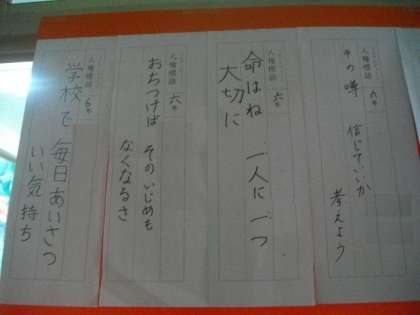 人権標語 六年
その噂 信じていいか
考えよう
人権標語 六年
命はね 一人に一つ
大切に
人権標語 六年
おちつけば そのいじめも
なくなるさ
人権標語 6年
学校で 毎日あいさつ
いい気持ち